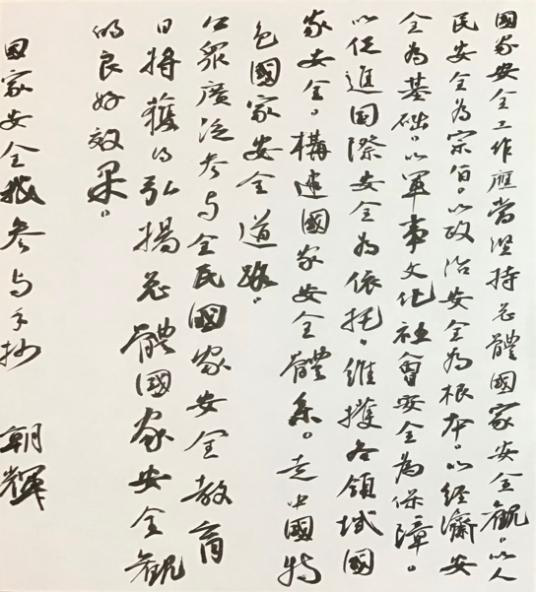 國家安全工作應當堅持总體國家安全觀。以人
民安全為宗旨。以政治安全為根本。以经濟安
全為基础。以軍事文化社會安全為保障。
以促進国際安全為依托。維護各領域國
家安全。構建國家安全體系。走中國特
色國家安全道路。
公眾廣泛参与全民國家安全教育
日将獲得弘揚总體國家安全觀
的良好效果。
国家安全我參与手抄 朝輝